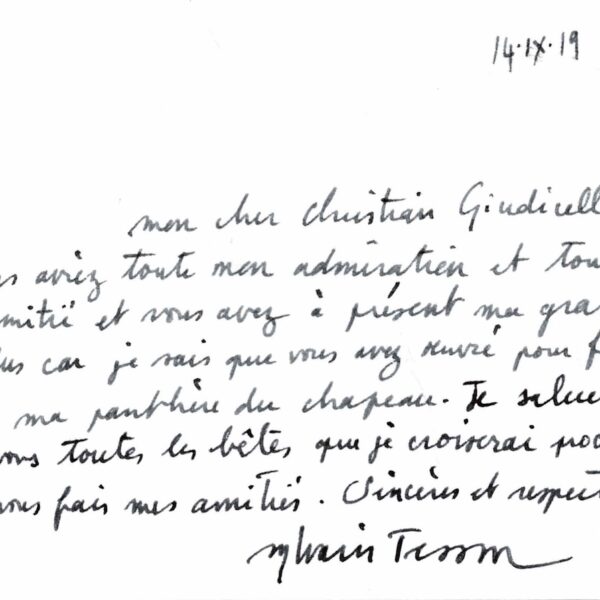 14.IX.19
mon cher Christian Giudicell
s aviez toute mon admiration et tou
mitié et vous avez à présent ma gra
us car je sais que vous avez œuvré pour f
ma panthère du chapeau. Je salue
vous toutes les bêtes que je croiserai pou
vous fais mes amitiés. Sincères et respect
Sylvain Tesson